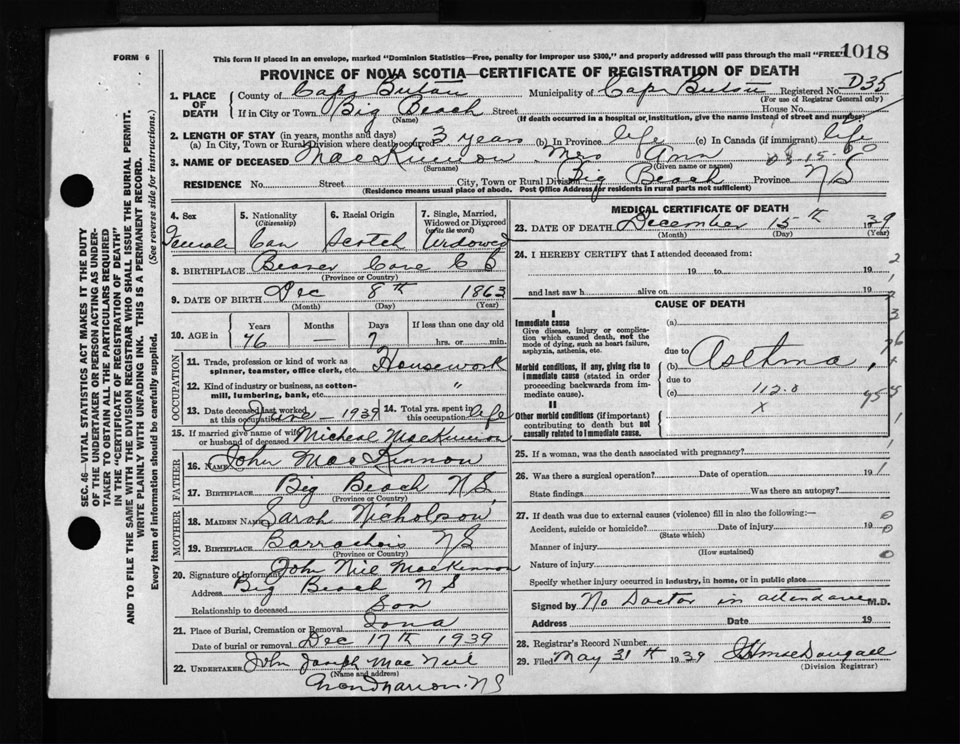 FORM 6
This form if placed in an envelope, marked "Dominion Statistics—Free, penalty for improper use $300," and properly addressed will pass through the mail "FREE"
1018
PROVINCE OF NOVA SCOTIA—CERTIFICATE OF REGISTRATION OF DEATH
1. PLACE OF DEATH
County of Cape Breton Municipality of Cape Breton Registered No. D35
(For use of Registrar General only)
If in City or Town Big Beach Street House No.
(Name) (If death occurred in a hospital or institution, give the name instead of street and number)
2. LENGTH OF STAY (in years, months and days)
(a) In City, Town or Rural Division where death occurred 3 years (b) In Province life (c) In Canada (if immigrant) life
3. NAME OF DECEASED MacKinnon Mrs Ann
(Surname) (Given name or names)
RESIDENCE No. Street City, Town or Rural Division Big Beach Province NS
(Residence means usual place of abode. Post Office Address for residents in rural parts not sufficient)
4. Sex Female
5. Nationality (Citizenship) Can
6. Racial Origin Scotch
7. Single, Married, Widowed or Divorced (write the word) Widowed
8. BIRTHPLACE Beaver Cove C B
(Province or Country)
9. DATE OF BIRTH Dec 8th 1863
(Month) (Day) (Year)
10. AGE in Years Months Days If less than one day old
76 — 7 hrs. or min.
OCCUPATION
11. Trade, profession or kind of work as spinner, teamster, office clerk, etc. Housework
12. Kind of industry or business, as cotton-mill, lumbering, bank, etc. "
13. Date deceased last worked at this occupation June - 1939
14. Total yrs. spent in this occupation life
15. If married give name of wife or husband of deceased Micheal MacKinnon
FATHER
16. NAME John MacKinnon
17. BIRTHPLACE Big Beach N S
(Province or Country)
MOTHER
18. MAIDEN NAME Sarah Nicholson
19. BIRTHPLACE Barrachois NS
(Province or Country)
20. Signature of Informant John Niel MacKinnon
Address Big Beach N S
Relationship to deceased Son
21. Place of Burial, Cremation or Removal Iona
Date of burial or removal Dec 17th 1939
22. UNDERTAKER John Joseph MacNeil
(Name and address)
Grand Narrows. NS
MEDICAL CERTIFICATE OF DEATH
23. DATE OF DEATH December 15th 1939
(Month) (Day) (Year)
24. I HEREBY CERTIFY that I attended deceased from:
19 to 19
and last saw h alive on 19
CAUSE OF DEATH
I
Immediate cause
Give disease, injury or complication which caused death, not the mode of dying, such as heart failure, asphyxia, asthenia, etc.
(a)
due to
Morbid conditions, if any, giving rise to immediate cause (stated in order proceeding backwards from immediate cause).
(b) Astma
due to
(c) 112.0
II
Other morbid conditions (if important) contributing to death but not causally related to immediate cause.
x
25. If a woman, was the death associated with pregnancy?
26. Was there a surgical operation? Date of operation 19
State findings Was there an autopsy?
27. If death was due to external causes (violence) fill in also the following:—
Accident, suicide or homicide? Date of injury 19
(State which)
Manner of injury
(How sustained)
Nature of injury
Specify whether injury occurred in industry, in home, or in public place
Signed by No Doctor in attendance M.D.
Address Date 19
28. Registrar's Record Number
29. Filed May 31th 1939
(Division Registrar)
SEC. 46—VITAL STATISTICS ACT MAKES IT THE DUTY
OF THE UNDERTAKER OR PERSON ACTING AS UNDER-
TAKER TO OBTAIN ALL THE PARTICULARS REQUIRED
IN THE "CERTIFICATE OF REGISTRATION OF DEATH"
AND TO FILE THE SAME WITH THE DIVISION REGISTRAR WHO SHALL ISSUE THE BURIAL PERMIT.
WRITE PLAINLY WITH UNFADING INK. THIS IS A PERMANENT RECORD.
Every item of information should be carefully supplied. (See reverse side for instructions.)